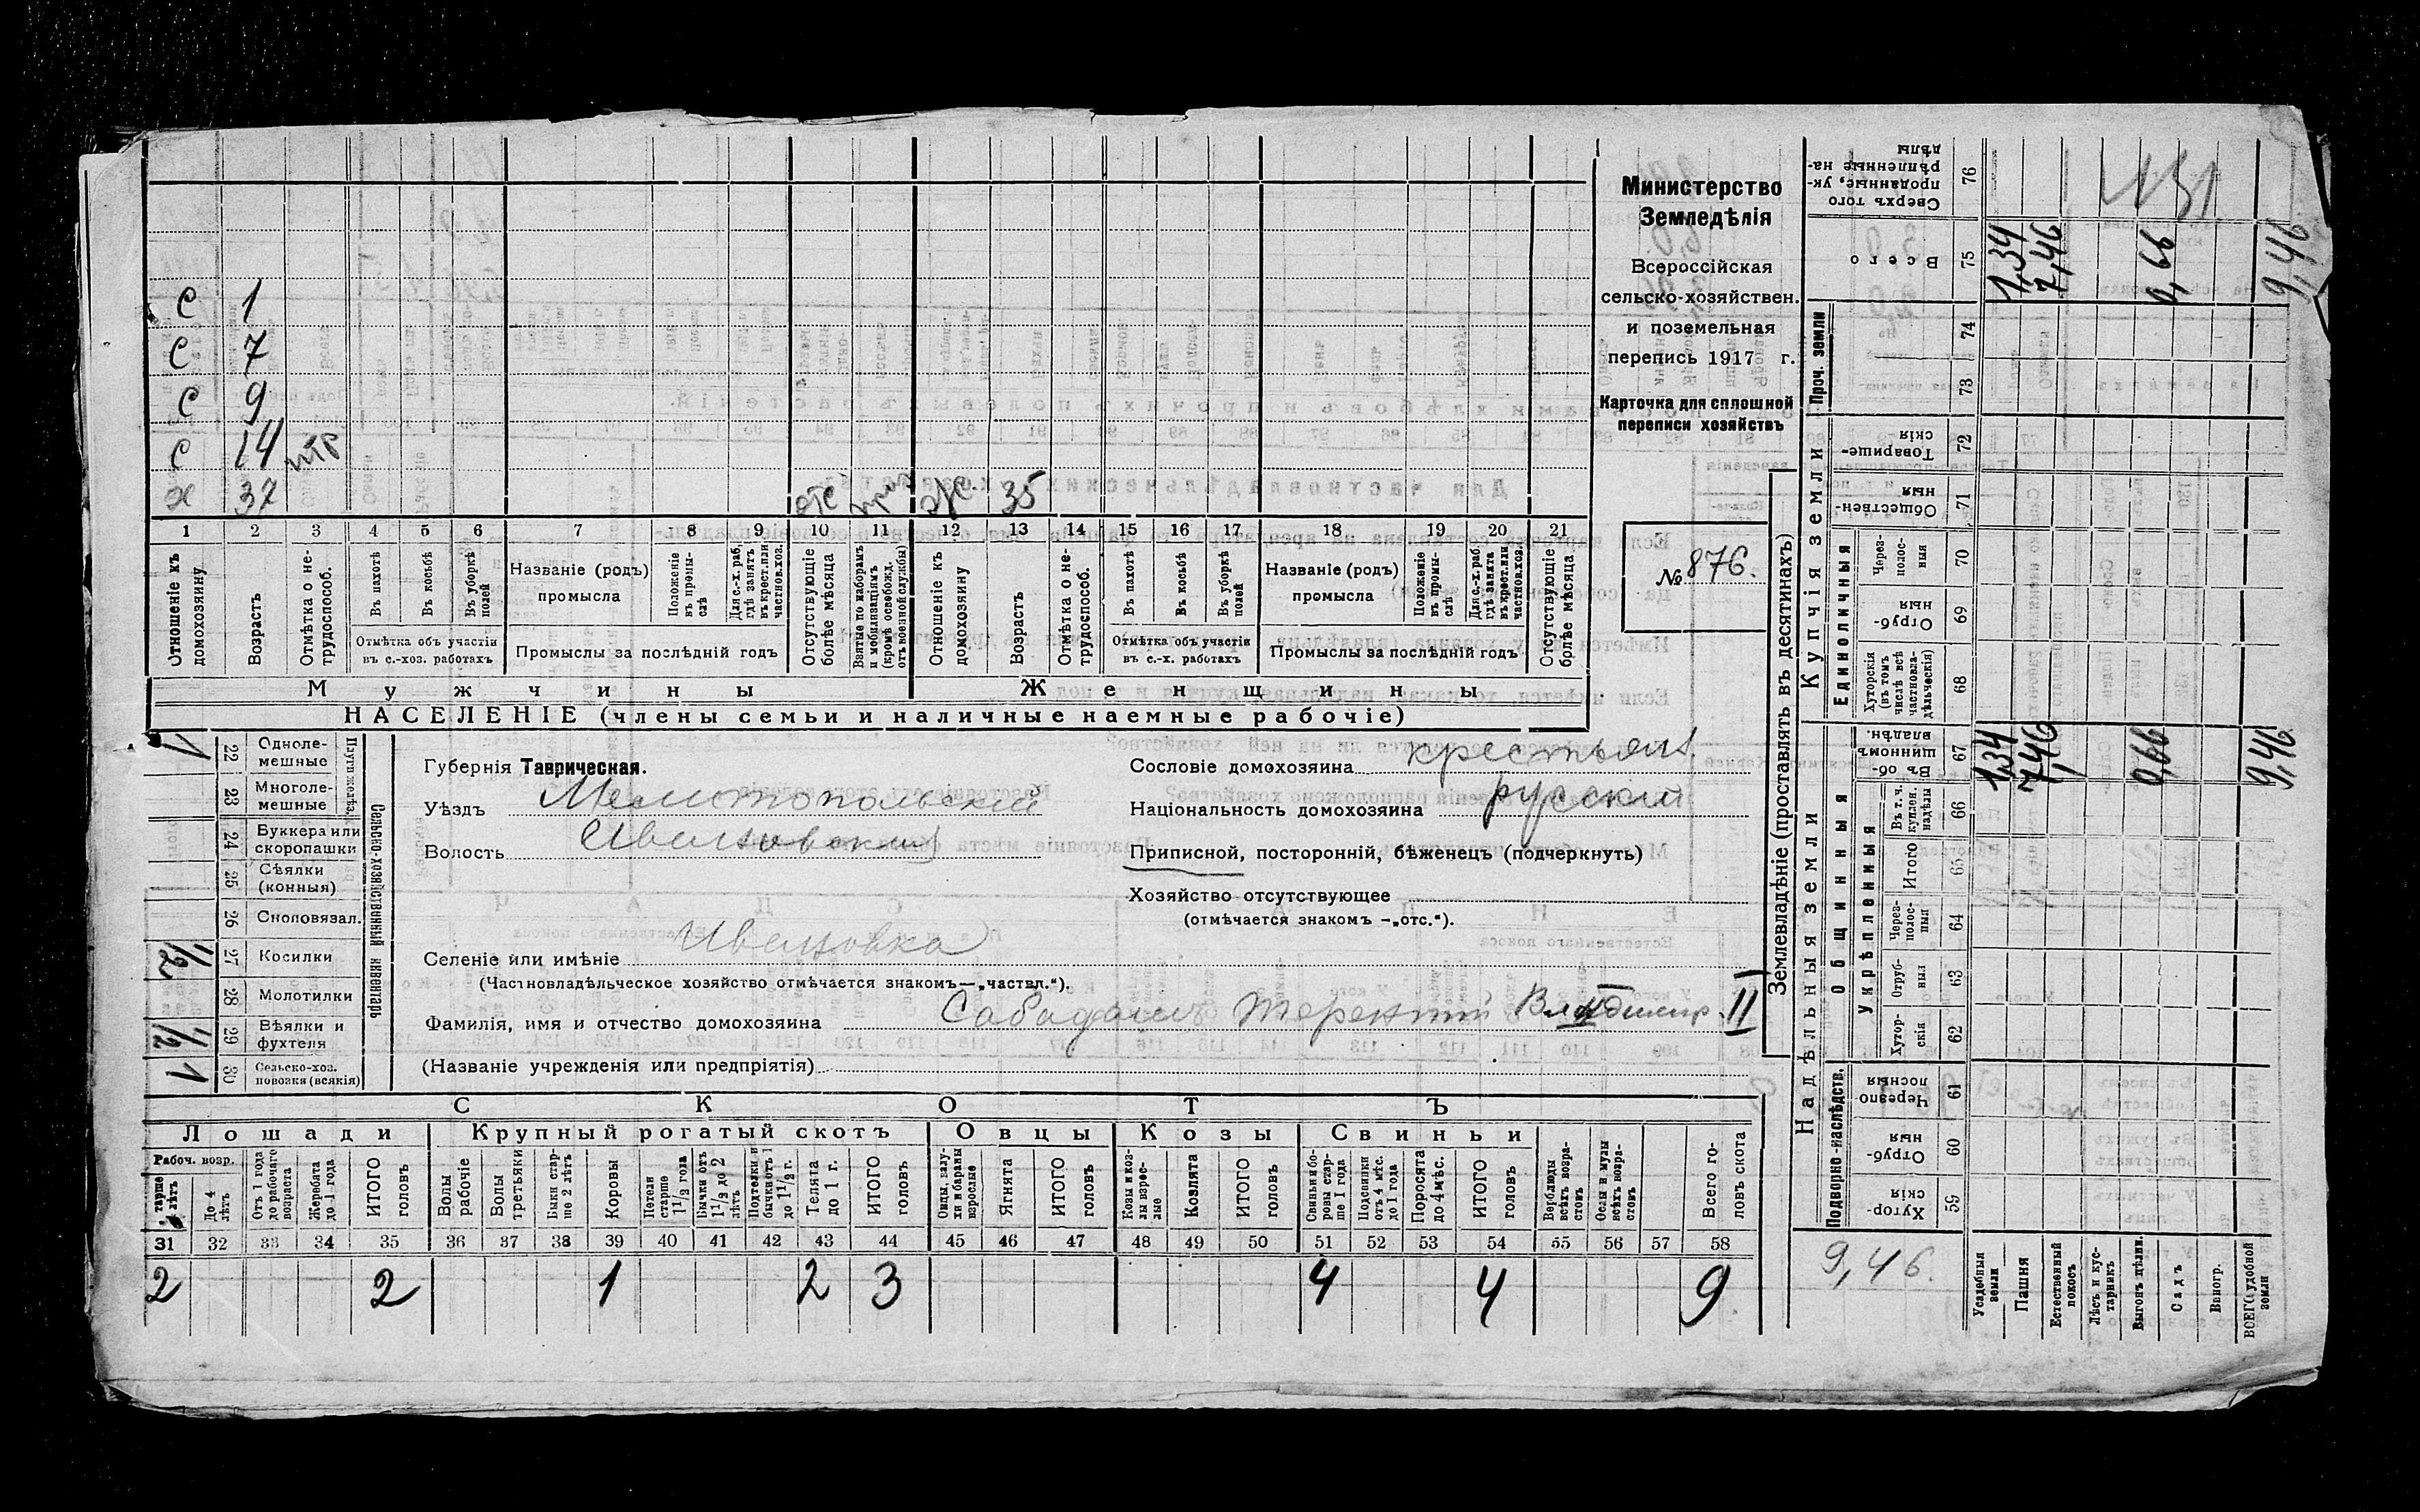 Министерство
Земледѣлія
Всероссійская
сельско-хозяйствен.
и поземельная
перепись 1917 г.
Карточка для сплошной
переписи хозяйствъ
№ 876.
с 1
с 7
с 9
с 14 нтр
х 37 отс ж. 35
1 2 3 4 5 6 7 8 9 10 11 12 13 14 15 16 17 18 19 20 21
Отношеніе къ домохозяину.
Возрастъ
Отмѣтка о не-трудоспособ.
Въ пахотѣ
Въ косьбѣ
Въ уборкѣ полей
Отмѣтка объ участіи
въ с.-хоз. работахъ
Названіе (родъ)
промысла
Положеніе въ промы-слѣ
Для с.-х. раб. гдѣ занятъ въ крест. или частнов. хоз.
Промыслы за послѣдній годъ
Отсутствующіе болѣе мѣсяца
Взятые по наборамъ и мобилизаціямъ (кромѣ освобожд. отъ военной службы)
Отношеніе къ домохозяину
Возрастъ
Отмѣтка о не-трудоспособ.
Въ пахотѣ
Въ косьбѣ
Въ уборкѣ полей
Отмѣтка объ участіи
въ с.-х. работахъ
Названіе (родъ)
промысла
Положеніе въ промы-слѣ
Для с.-х. раб. гдѣ занята въ крест. или частнов. хоз.
Промыслы за послѣдній годъ
Отсутствующіе болѣе мѣсяца
Мужчины Женщины
НАСЕЛЕНІЕ (члены семьи и наличные наемные рабочіе)
Сельско-хозяйственный инвентарь
Плуги желѣз.
22 Одноле-мешные 1
23 Многоле-мешные
24 Буккера или скоропашки
25 Сѣялки (конныя)
26 Сноповязал.
27 Косилки 1/2
28 Молотилки
29 Вѣялки и фухтеля 1/2
30 Сельско-хоз. повозки (всякія) 1
Губернія Таврическая.
Уѣздъ Мелитопольскій
Волость Ивановский
Селеніе или имѣніе Ивановка
(Частновладѣльческое хозяйство отмѣчается знакомъ—„частвл.“).
Фамилія, имя и отчество домохозяина Сабадашъ Терентий Владимир. II
(Названіе учрежденія или предпріятія)
Сословіе домохозяина крестьян.
Національность домохозяина русский
Приписной, посторонній, бѣженецъ (подчеркнуть)
Хозяйство отсутствующее
(отмѣчается знакомъ —„отс.“).
СКОТЪ
Лошади Крупный рогатый скотъ Овцы Козы Свиньи
Рабоч. возр.
старше 4 лѣтъ
До 4 лѣтъ
Отъ 1 года до рабочаго возраста
Жеребята до 1 года
ИТОГО головъ
Волы рабочіе
Волы третьяки
Быки стар-ше 2 лѣтъ
Коровы
Нетели старше 1 1/2 года
Бычки отъ 1 1/2 до 2 лѣтъ
Подтелки и бычки отъ 1 до 1 1/2 г.
Телята до 1 г.
ИТОГО головъ
Овцы, валу-хи и бараны взрослые
Ягнята
ИТОГО головъ
Козы и коз-лы взрос-лые
Козлята
ИТОГО головъ
Свиньи и бо-ровы стар-ше 1 года
Подсвинки отъ 4 мѣс. до 1 года
Поросята до 4 мѣс.
ИТОГО головъ
Верблюды всѣхъ возра-стовъ
Ослы и мулы всѣхъ возра-стовъ
Всего го-ловъ скота
31 32 33 34 35 36 37 38 39 40 41 42 43 44 45 46 47 48 49 50 51 52 53 54 55 56 57 58
2 2 1 2 3 4 4 9
Землевладѣніе (проставлять въ десятинахъ)
Надѣльныя земли
Купчія земли
Проч. земли
Подворно-наслѣдств.
Общинныя
Укрѣпленныя
Единоличныя
59 Хутор-скія
60 Отруб-ныя
61 Черезпо лосныя
62 Хутор-скія
63 Отруб-ныя
64 Через-полос-ныя
65 Итого
66 Въ т. ч. куплен. надѣлы
67 Въ об-щинномъ владѣн.
68 Хуторскія (въ томъ числѣ всѣ частновла-дѣльческія)
69 Отруб-ныя
70 Через-полос-ныя
71 Обществен-ныя
72 Товарище-скія
73
74
75 Всего
76 Сверхъ того проданные, ук-рѣпленные на-дѣлы
9,46.
Усадебныя земли 1,34 1,34
Пашня 7,46 7,46
Естественный покосъ
Лѣсъ и кус-тарникъ
Выгонъ цѣлин. 0,66 0,66
Садъ
Виногр.
ВСЕГО удобной земли 9,46 9,46
131